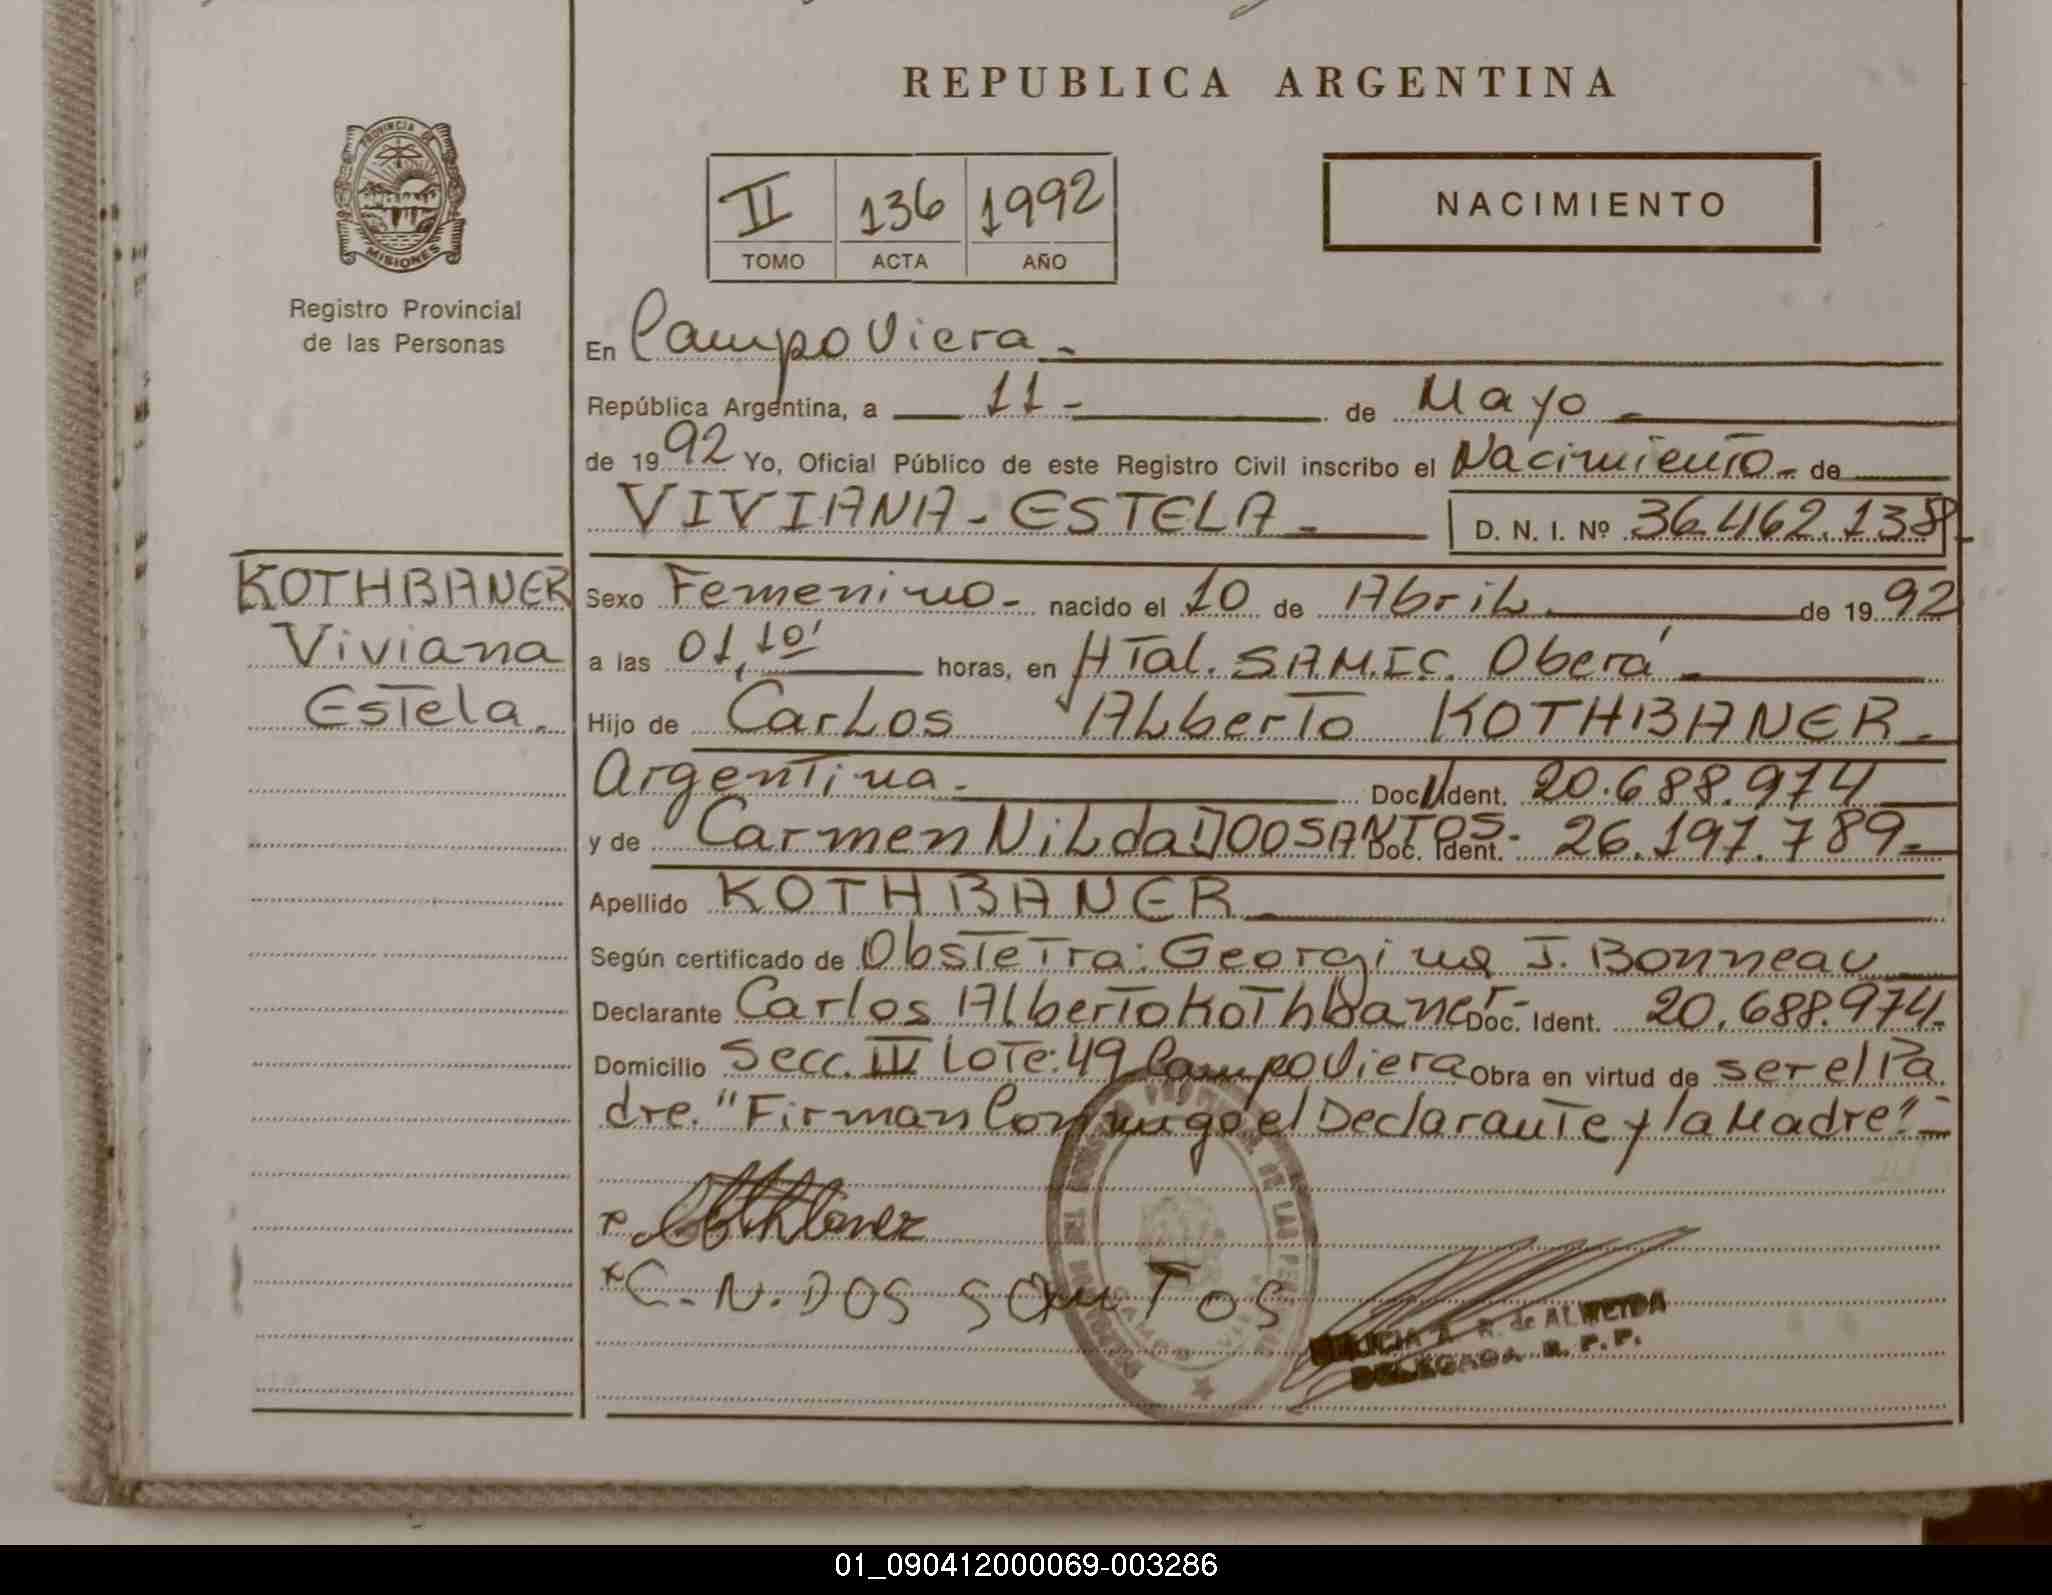 REPUBLICA ARGENTINA
PROVINCIA DE
MISIONES
Registro Provincial
de las Personas
II 136 1992
TOMO ACTA AÑO
NACIMIENTO
En Campo Viera -
República Argentina, a 11 - de Mayo -
de 19 92 Yo, Oficial Público de este Registro Civil inscribo el Nacimiento - de
VIVIANA - ESTELA - D. N. I. Nº 36.462.138 -
KOTHBANER
Viviana
Estela.
Sexo Femenino - nacido el 10 de Abril de 19 92
a las 01,10' horas, en HTal. S.A.M.I.C. Oberá -
Hijo de Carlos Alberto KOTHBANER -
Argentina - Doc. N Ident. 20.688.974
y de Carmen Nilda DOOSANTOS - Doc. Ident. 26.197.789 -
Apellido KOTHBANER -
Según certificado de Obstetra: Georgina J. Bonneau
Declarante Carlos Alberto Kothbaner - Doc. Ident. 20.688.974.
Domicilio Secc. IV Lote: 49 Campo Viera Obra en virtud de ser el Pa
dre. "Firman Conmigo el Declarante y la Madre" -
x Kothbaner
x C. N. DOS SANTOS
DE LAS
A. R. de ALMEIDA
DELEGADA R. P. P.
01_090412000069-003286